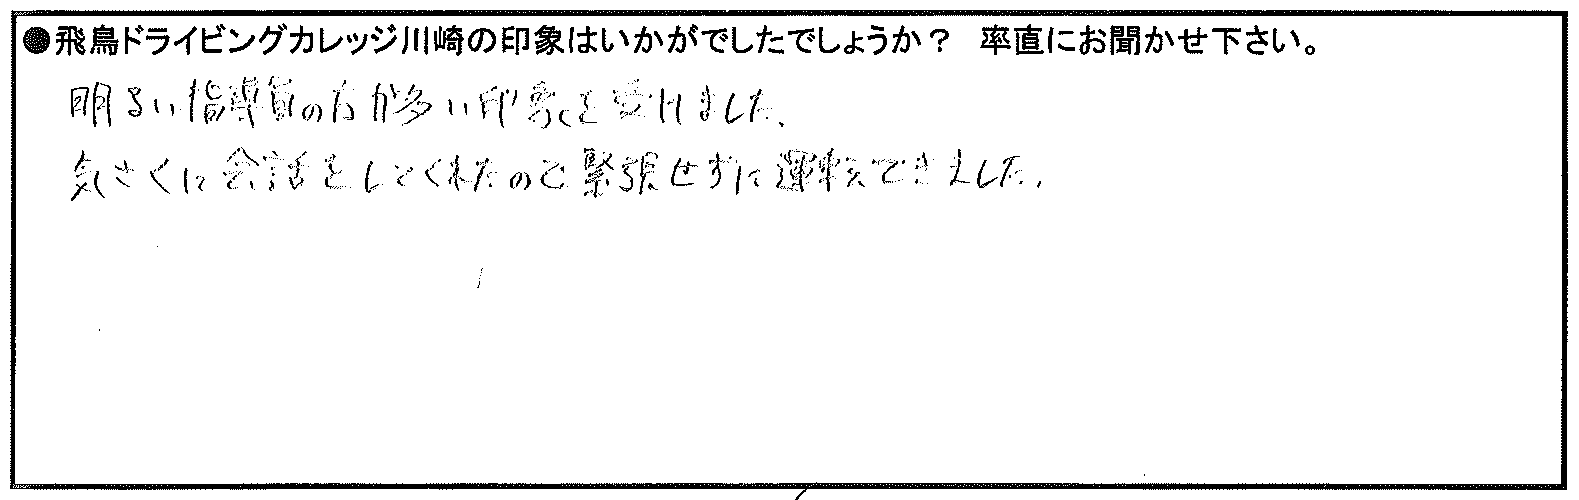 ●飛鳥ドライビングカレッジ川崎の印象はいかがでしたでしょうか？　率直にお聞かせ下さい。
明るい指導員の方が多い印象を受けました、
気さくに会話をしてくれたので緊張せずに運転できました、